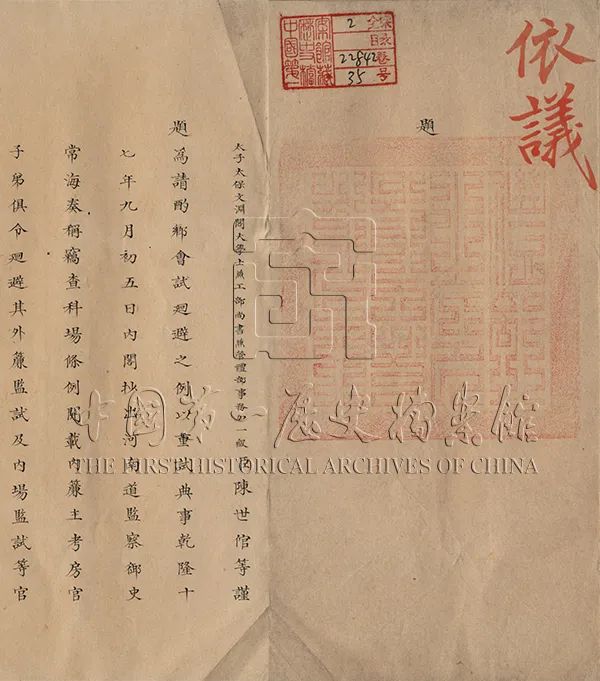 依議
題
中國第一
歷史檔
案館藏
2
22842
35
太子太保文淵閣大學士兼工部尚書兼管禮部事務加一級臣陳世倌等謹
題為請酌鄉會試迴避之例以重試典事乾隆十
七年九月初五日內閣抄出河南道監察御史
常海奏稱竊查科場條例開載內簾主考房官
子弟俱令迴避其外簾監試及內場監試等官
中國第一歷史档案館
THE FIRST HISTORICAL ARCHIVES OF CHINA